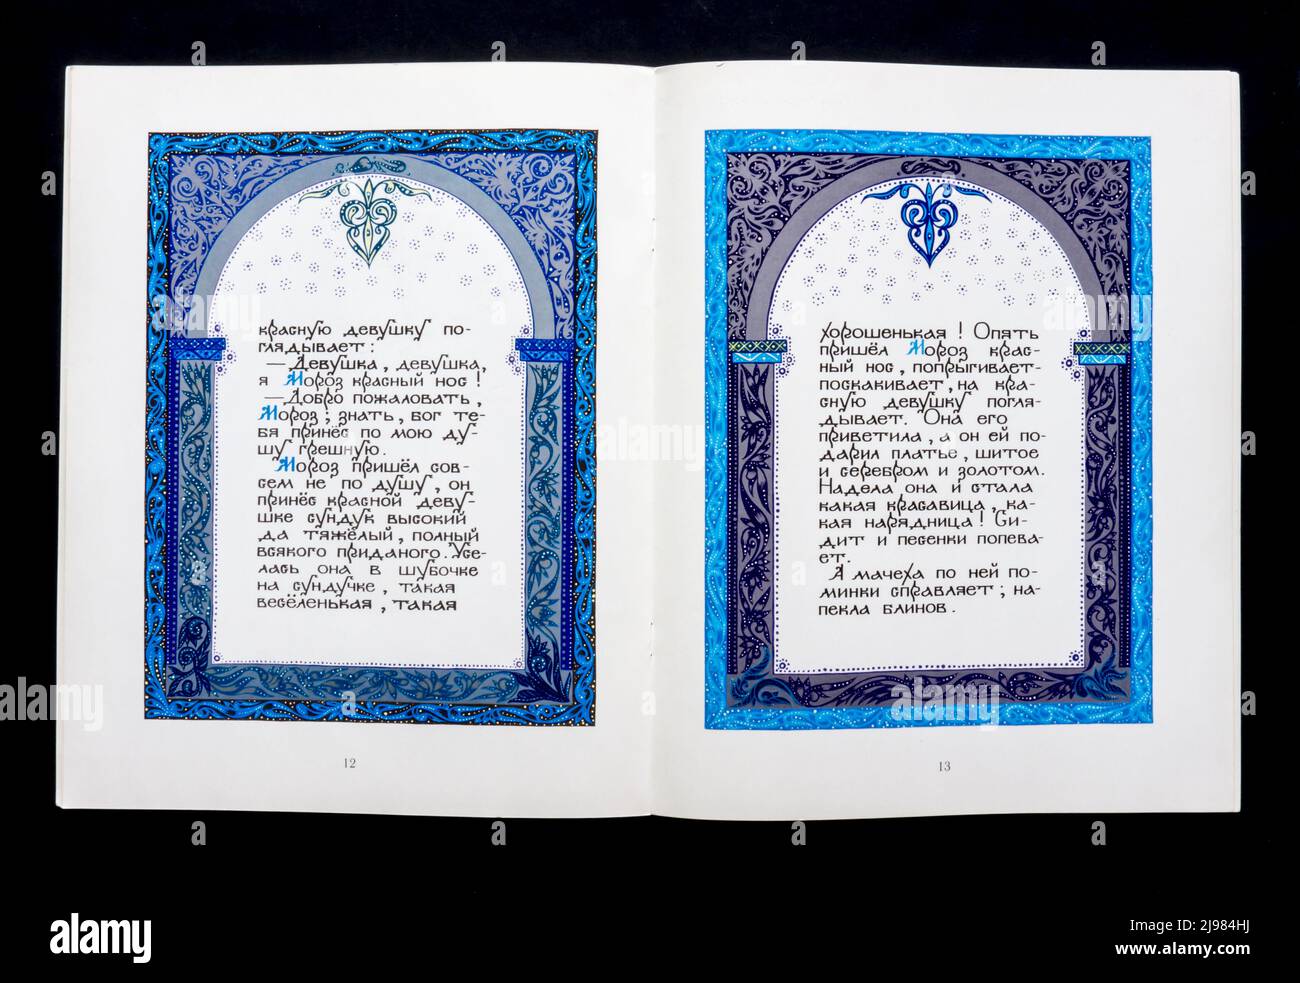 красную девушку по-
глядывает:
— Девушка, девушка,
я Мороз красный нос!
— Добро пожаловать,
Мороз; знать, бог те-
бя принёс по мою ду-
шу грешную.
Мороз пришёл сов-
сем не по душу, он
принёс красной деву-
шке сундук высокий
да тяжёлый, полный
всякого приданого. Усе-
лась она в шубочке
на сундучке, такая
весёленькая, такая
12
хорошенькая! Опять
пришёл Мороз крас-
ный нос, попрыгивает-
поскакивает, на кра-
сную девушку погля-
дывает. Она его
приветила, а он ей по-
дарил платье, шитое
и серебром и золотом.
Надела она и стала
какая красавица, ка-
кая нарядница! Си-
дит и песенки попева-
ет.
А мачеха по ней по-
минки справляет; на-
пекла блинов.
13
alamy
Image ID: 2J984HJ
www.alamy.com